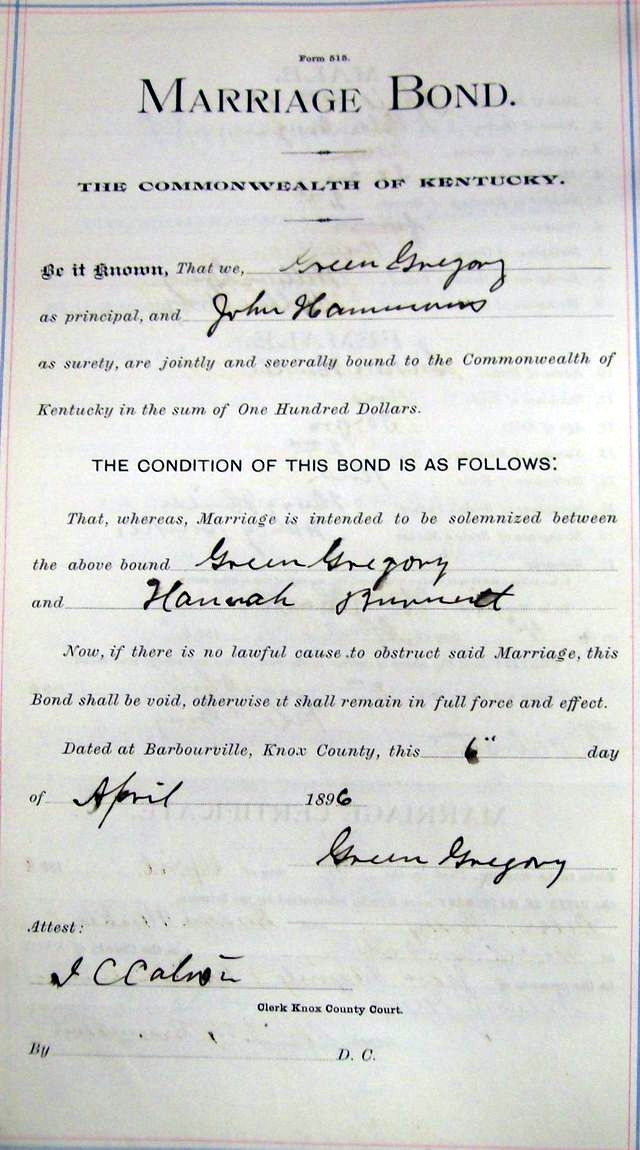 Form 515.
MARRIAGE BOND.
THE COMMONWEALTH OF KENTUCKY.
Be it Known, That we, Green Gregory
as principal, and John Hammons
as surety, are jointly and severally bound to the Commonwealth of
Kentucky in the sum of One Hundred Dollars.
THE CONDITION OF THIS BOND IS AS FOLLOWS:
That, whereas, Marriage is intended to be solemnized between
the above bound Green Gregory
and Hannah Burnett
Now, if there is no lawful cause to obstruct said Marriage, this
Bond shall be void, otherwise it shall remain in full force and effect.
Dated at Barbourville, Knox County, this 6" day
of April 1896
Green Gregory
Attest:
Clerk Knox County Court.
By D. C.